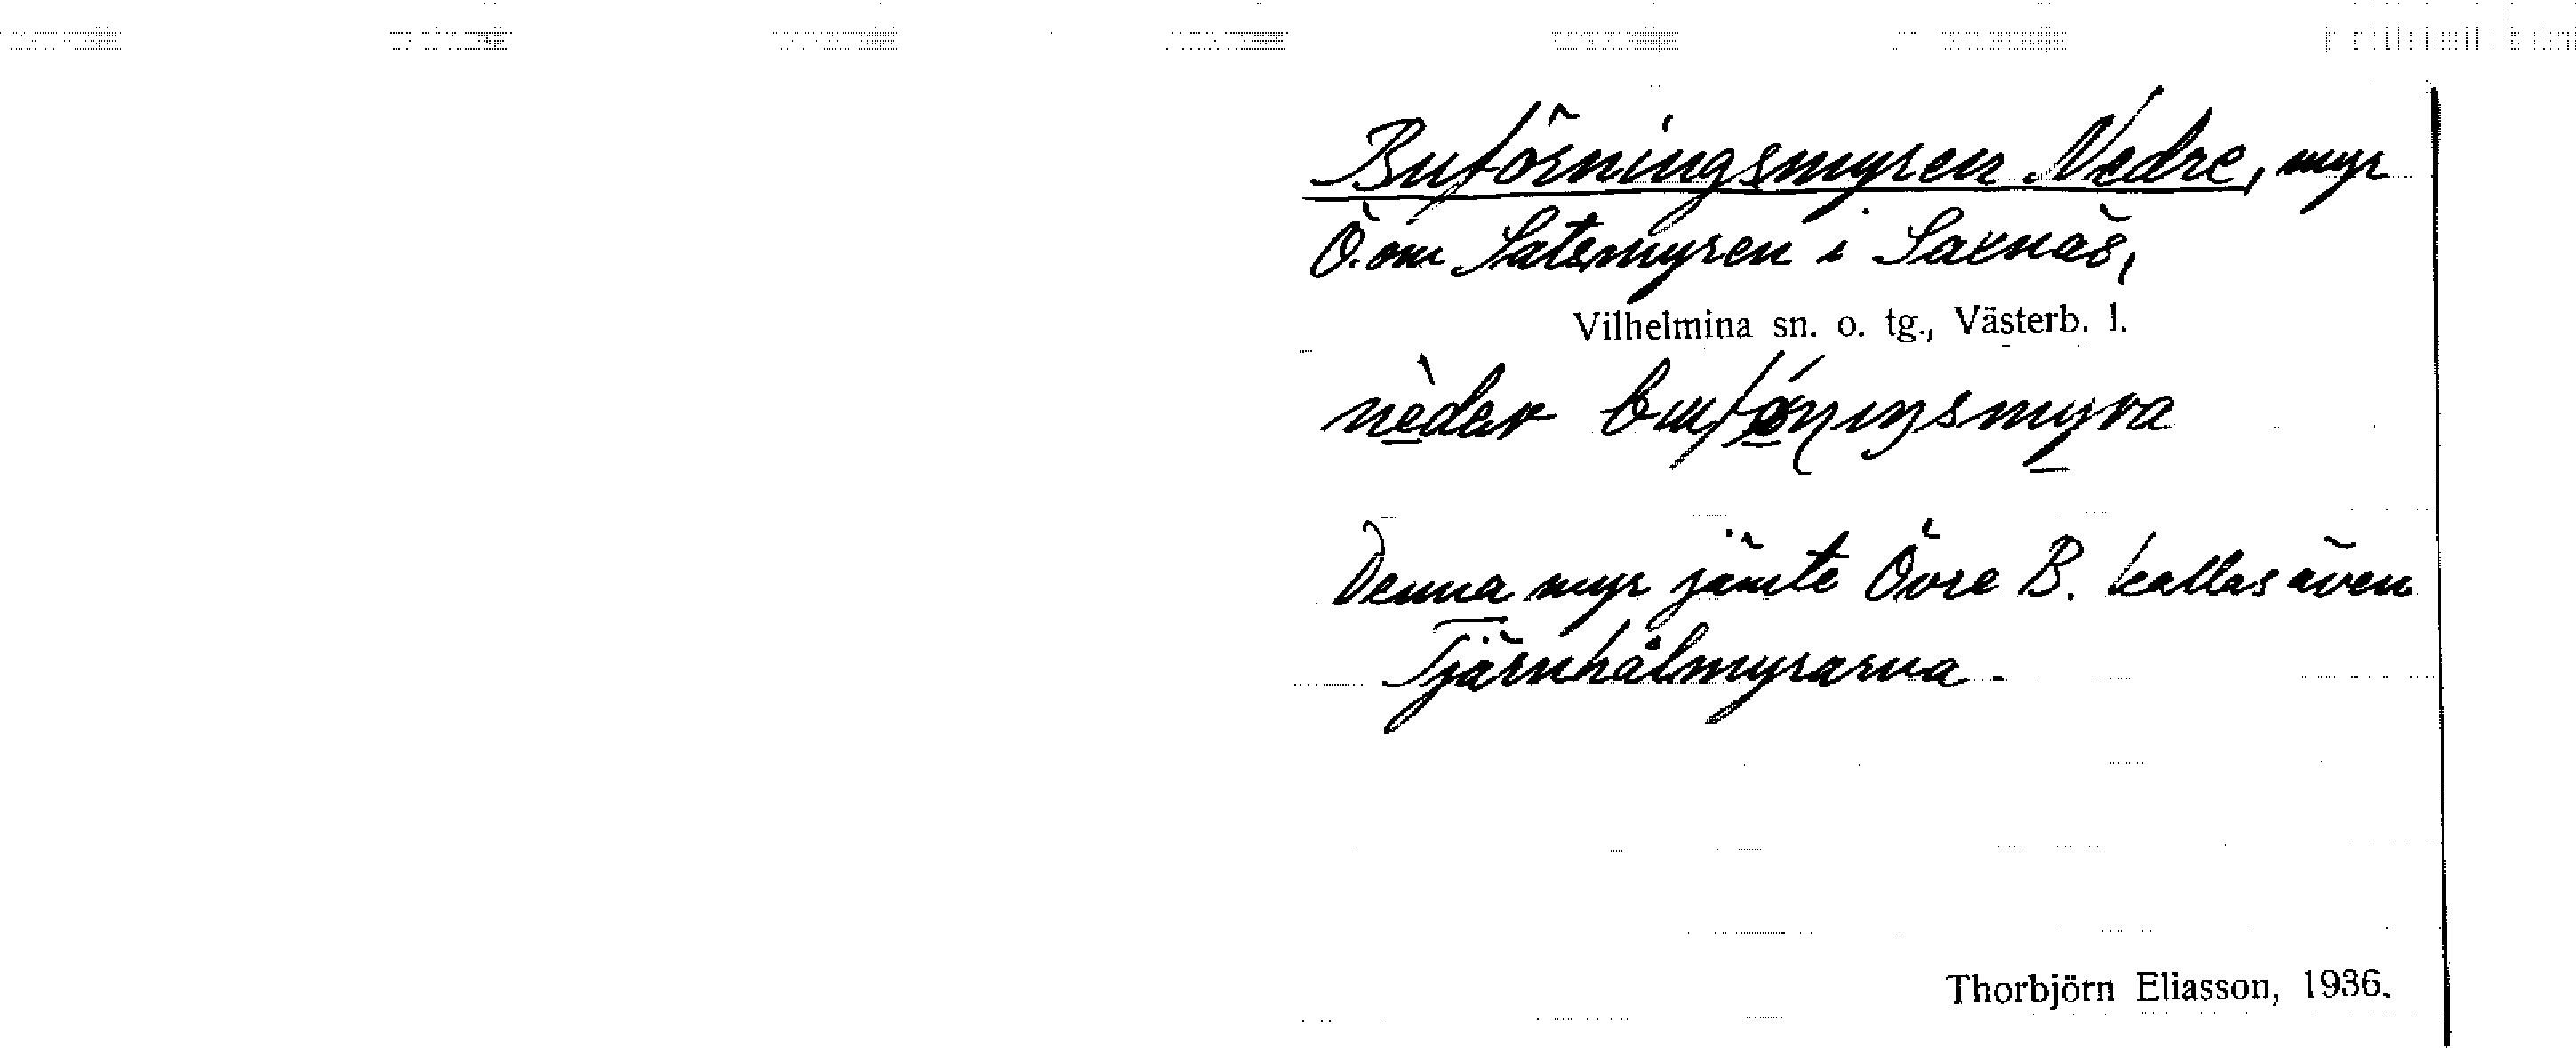 Buförningsmyren Nedre, myr
Ö. om Satsmyren i Saxnäs,
Vilhelmina sn. o. tg., Västerb. l.
nèder buföŋiŋsmyra
Denna myr jämte Övre B. kallas även
Tjärnhålmyrarna.
Thorbjörn Eliasson, 1936.